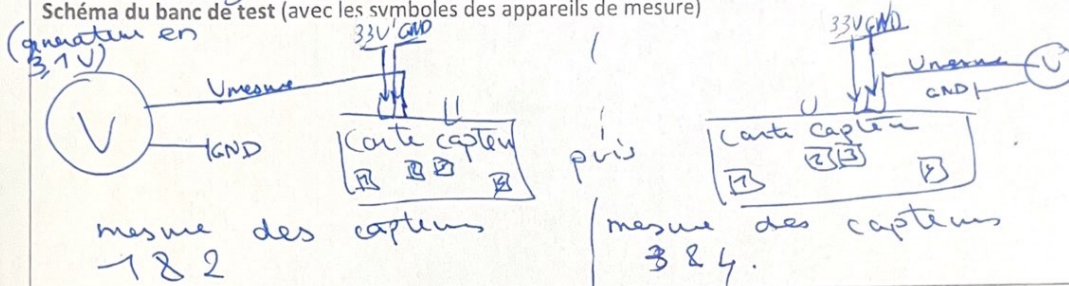 Schéma du banc de test (avec les symboles des appareils de mesure)
(générateur en
3,1V)
33V GND
Umesure
V
GND
Carte capteu
1 2 3 4
mesure des capteurs
1 & 2
puis
33V GND
Umesure
V
GND
Carte capteu
1 2 3 4
mesure des capteurs
3 & 4.